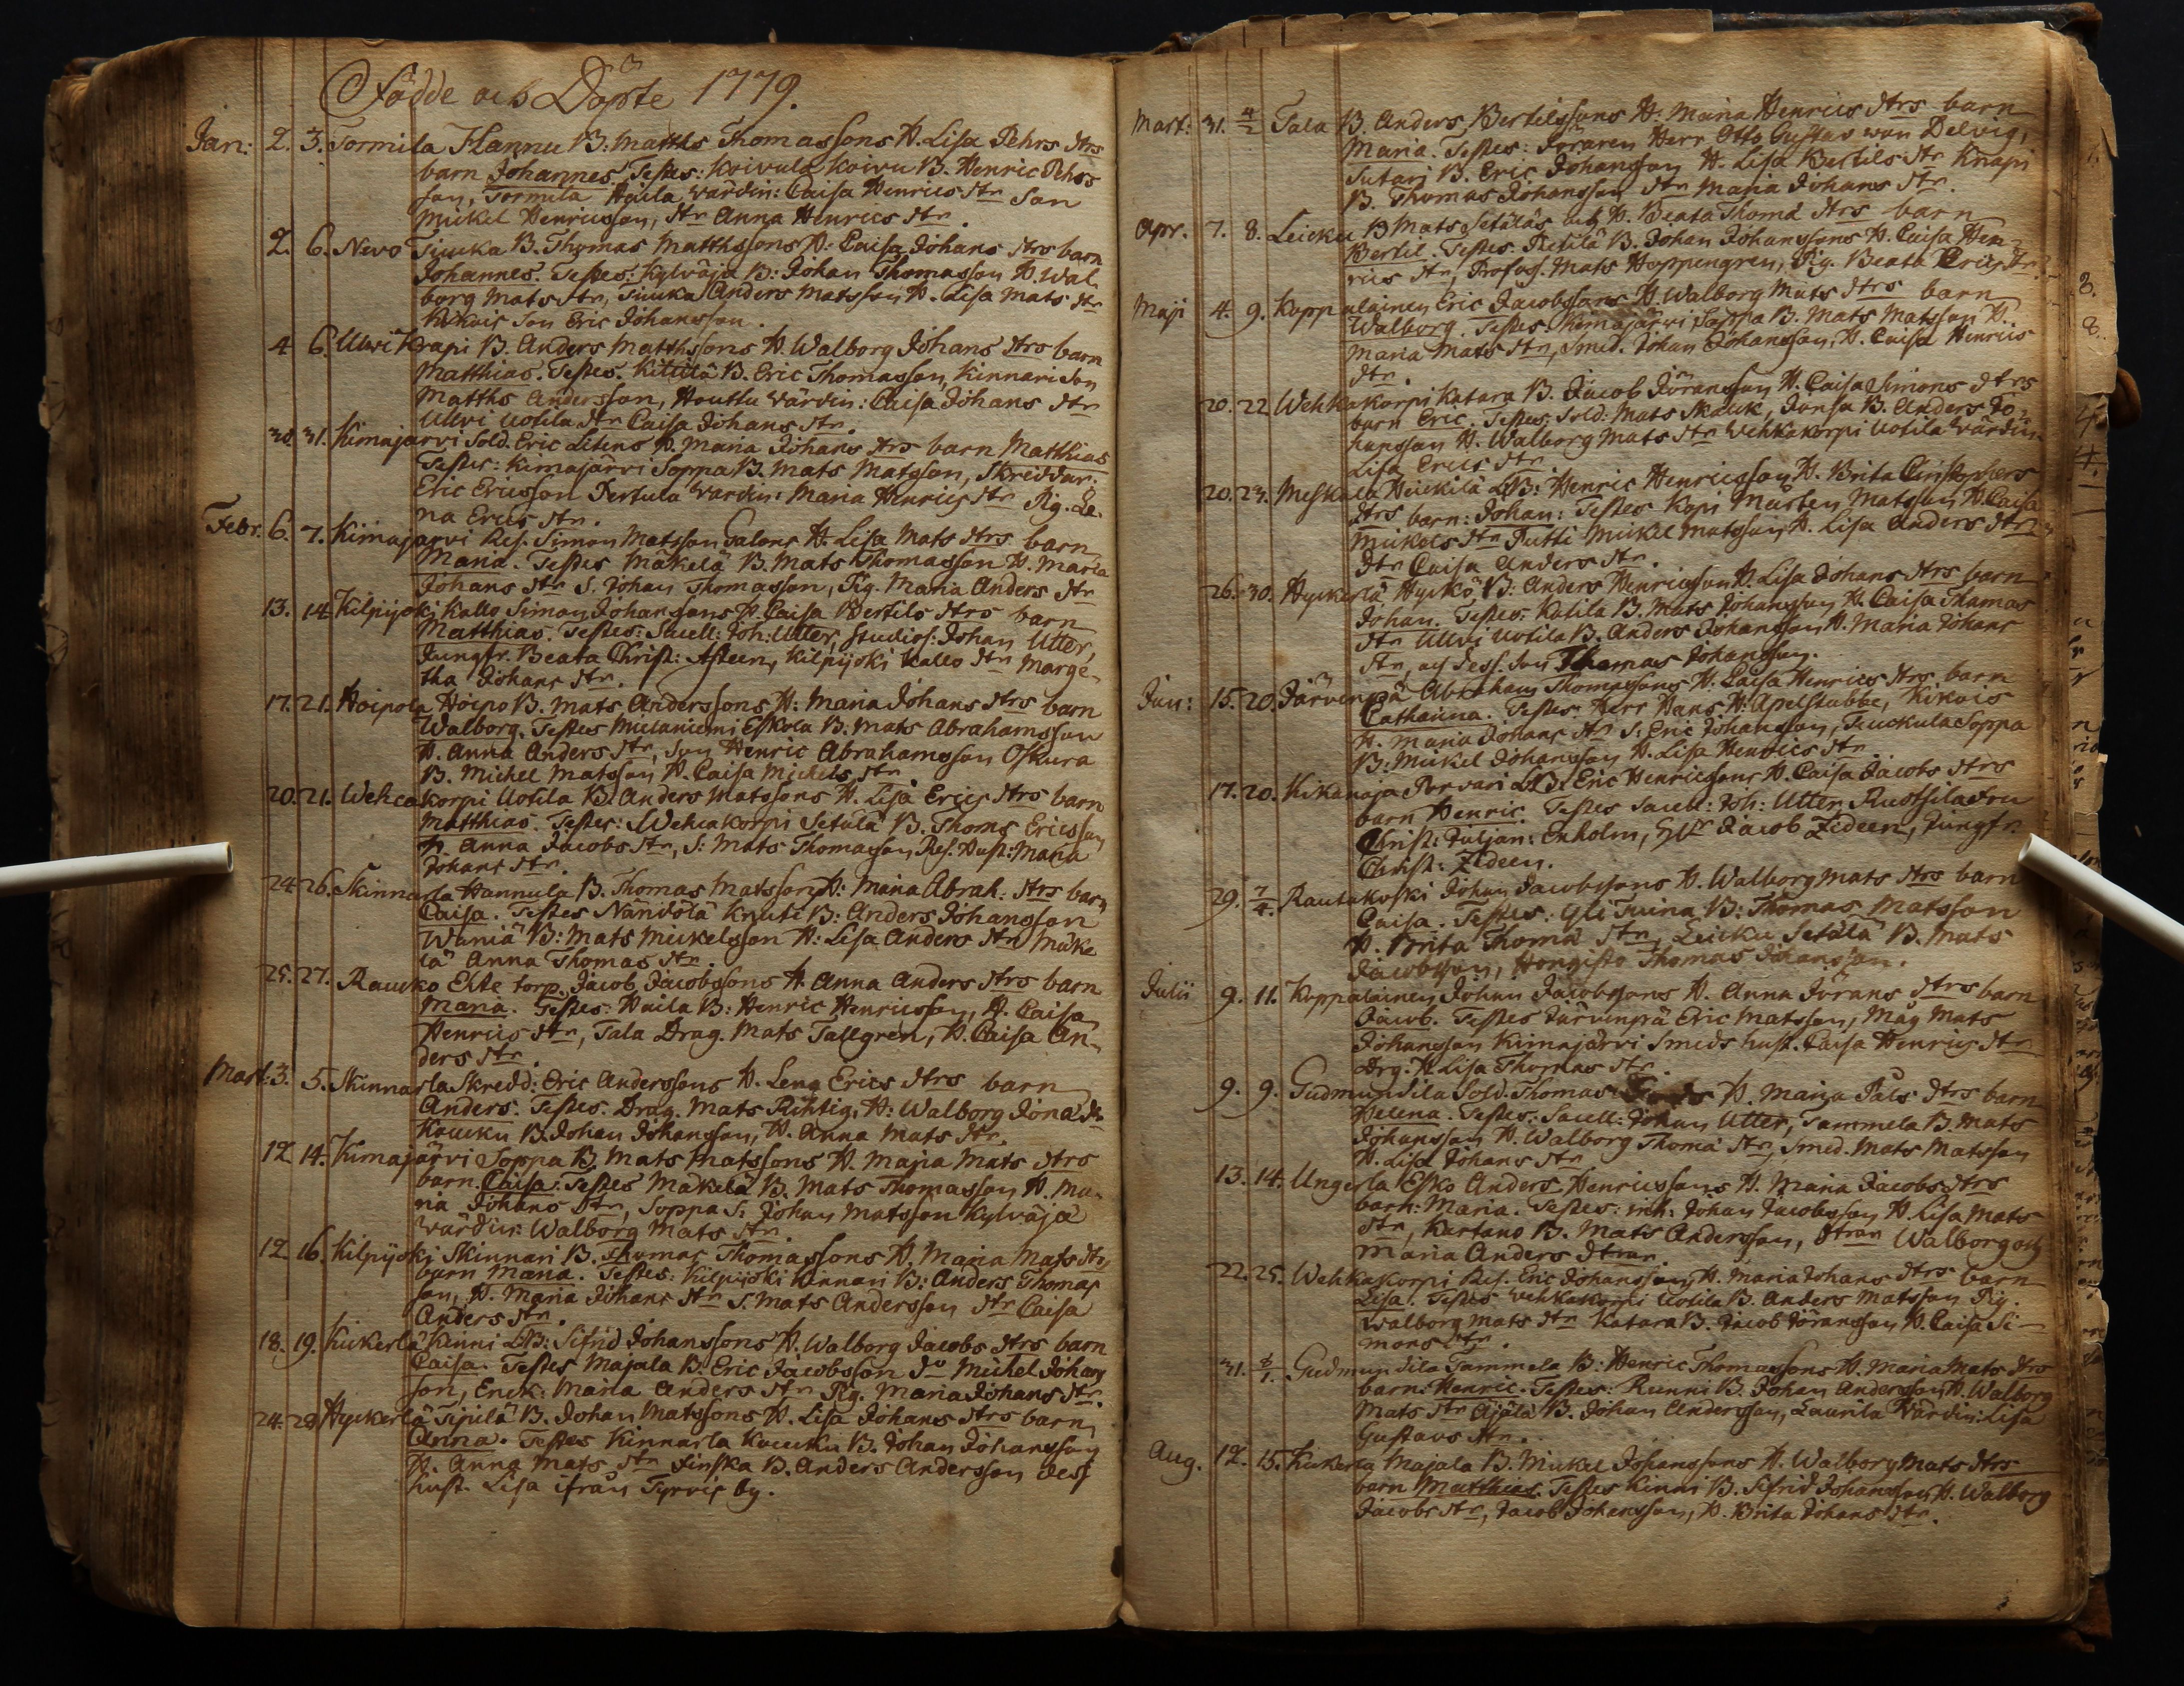 Födde och Döpte 1779.
Jan: 2. 3. Tormila Hannu B: Matths Thomassons H. Lisa Pehrs dtrs
barn Johannes. Testes: Koivula Koivu B. Henric Pehrs
son, Tormila Heila värdin: Caisa Henrics dtr Son
Mickel Henricsson, dtr Anna Henrics dtr.
2. 6. Nevo Tiucka B. Thomas Matthssons H: Caisa Johans dtrs barn
Johannes. Testes: Kylväjä B: Johan Thomasson H. Wal
borg Mats dtr, Tiucka Anders Matsson H. Lisa Mats dtr
Kikois Son Eric Johansson.
4 6. Ulvi Krapi B. Anders Matthssons H. Walborg Johans dtrs barn
Matthias. Testes. Kittilä B. Eric Thomasson, Kinnari Son
Matths Andersson, Houttu värdin: Caisa Johans dtr
Ulvi Uotila dtr Caisa Johans dtr.
30. 31. Kimajärvi Sold. Eric Litens H. Maria Johans dtrs barn Matthias
Testes: Kimajärvi Soppa B. Mats Matsson, Skreddar:
Eric Ericsson Pertula värdin: Maria Henrics dtr Pig. Le-
na Erics dtr.
Febr. 6. 7. Kimajärvi Res. Simon Matsson Galons H. Lisa Mats dtrs barn
Maria. Testes Mäkelä B. Mats Thomasson H. Maria
Johans dtr S. Johan Thomasson, Pig. Maria Anders dtr
13. 14 Kilpijoki Kallo Simon Johanssons H. Caisa Bertils dtrs barn
Matthias. Testes: Sacell: Joh: Utter, Studios: Johan Utter,
Jungfr. Beata Christ: Asteen, Kilpijoki Kallo dtr Marge-
tha Johans dtr.
17. 21. Hoipola Hoipo B. Mats Anderssons H: Maria Johans dtrs barn
Walborg. Testes Mielaniemi Eskola B. Mats Abrahamsson
H. Anna Anders dtr, Son Henric Abrahamsson Oskura
B. Michel Matsson H. Caisa Michels dtr
20. 21. Wehcakorpi Uotila B. Anders Matssons H. Lisa Erics dtrs barn
Matthias. Testes: Wehcakorpi Setälä B. Thoms Ericsson
H. Anna Jacobs dtr, S: Mats Thomasson Res. Hust: Maria
Johans dtr.
24 26. Skinnarla Hannula B. Thomas Matssons H: Maria Abrah: dtrs barn
Caisa. Testes Näntölä Knuti B: Anders Johansson
Waniä B: Mats Mickelsson H: Lisa Anders dtr Mäke
lä Anna Thomas dtr.
25. 27. Raucko Ehte torp. Jacob Jacobssons H. Anna Anders dtrs barn
Maria. Testes: Haila B: Henric Henricsson, H. Caisa
Henrics dtr, Tala Drag. Mats Tallgren, H. Caisa An-
ders dtr.
Mart: 3. 5. Skinnarla Skredd: Eric Anderssons H. Lena Erics dtrs barn
Anders. Testes. Drag. Mats Richtig, H: Walborg Jöna dr
Koucku B. Johan Johansson, H. Anna Mats dtr.
12 14. Kimajärvi Soppa B. Mats Matssons H. Maria Mats dtrs
barn. Caisa. Testes Mäkelä B. Mats Thomasson H. Ma-
ria Johans dtr, Soppa S: Johan Matsson Kylväjä
värdin: Walborg Mats dtr.
12 16. Kilpijoki Skinnari B. Thomas Thomassons H. Maria Mats dtrs
barn Maria. Testes: Kilpijoki Kinnari B: Anders Thomas
son, H. Maria Johans dtr S. Mats Andersson dtr Caisa
Anders dtr.
18. 19. Kickerlä Kinni LB: Sifrid Johanssons H. Walborg Jacobs dtrs barn
Caisa. Testes Majala B. Eric Jacobsson do Michel Johans
son, Enck: Maria Anders dtr Pig. Maria Johans dtr.
24. 28 Hyckerlä Sipilä B. Johan Matssons H. Lisa Johans dtrs barn
Anna. Testes Kinnarla Koucku B. Johan Johansson
H. Anna Mats dtr Finska B. Anders Andersson dess
hust. Lisa ifrån Tyrvis by.
Mart: 31. 4/2 Tala B. Anders Bertilssons H: Maria Henrics dtrs barn
Maria. Testes: Föraren Herr Otto Gustav von Delvig,
Sutari B. Eric Johansson H. Lisa Bertils dtr Knapi
B. Thomas Johansson dtr Maria Johans dtr.
Apr. 7. 8. Leicku B Mats Setäläs och H. Beata Thomæ dtrs barn
Bertil. Testes: Pietilä B. Johan Johanssons H. Caisa Hen-
rics dtr, Profoss. Mats Hoppengren, Pig. Beata Erics dtr
Maji 4. 9. Koppalainen Eric Jacobssons H. Walborg Mats dtrs barn
Walborg. Testes Kimajärvi Soppa B. Mats Matsson H.
Maria Mats dtr, Smed. Johan Johansson, H. Caisa Henrics
dtr.
20. 22 Wehkakorpi Katara B. Jacob Jöransson H. Caisa Simons dtrs
barn Eric. Testes: Sold: Mats Skauk, Junsa B. Anders Jo-
hansson H. Walborg Mats dtr Wehkakorpi Uotila värdin
Lisa Erics dtr
20. 23. Meskala Heickilä LB: Henric Henricsson H. Brita Christophers
dtrs barn: Johan: Testes Kopi Mårten Matsson H. Caisa
Mickels dtr Putti Mickel Matsson H. Lisa Anders dtr
dtr Caisa Anders dtr.
26. 30. Hyckerlä Hyrkö B: Anders Henricsson H. Lisa Johans dtrs barn
Johan. Testes: Kotila B. Mats Johansson H. Caisa Thomas
dtr Ulvi Uotila B. Anders Johansson H. Maria Johans
dtr, och dess. Son Thomas Johansson.
Jun: 15. 20. Järvenpä Abraham Thomassons H. Caisa Henrics dtrs barn
Catharina. Testes. Herr Hans H: Apelstubbe, Kikois
H. Maria Johans dtr S. Eric Johansson, Teuckula Soppa
B: Mickel Johansson H. Lisa Henrics dtr
17. 20. Kikanoja Porvari LB: Eric Henricssons H. Caisa Jacobs dtrs
barn Henric. Testes Sacell: Joh: Utter, Rustsila Fru
Christ: Juljan: Enholm, Hr Jacob Zideen, Jungfr:
Christ: Zideen.
29. 7/4. Rautakoski Johan Jacobssons H. Walborg Mats dtrs barn
Caisa. Testes: Yli Tuina B: Thomas Matsson
H. Brita Thomæ dtr, Leicku Setälä B. Mats
Jacobsson, Hongisto Thomas Johansson.
Julii 9. 11. Koppalainen Johan Jacobssons H. Anna Jörans dtrs barn
Jacob. Testes Järvenpä Eric Matsson, Måg Mats
Johansson Kimajärvi Smeds hust. Caisa Henrics dtr
Drg. H. Lisa Thomas dtr.
9. 9. Gudmundila Sold. Thomas H. Maria Påls dtrs barn
Helena. Testes: Sacell: Johan Utter, Tammela B. Mats
Johansson H. Walborg Thomæ dtr, Smed. Mats Matsson
H. Lisa Johans dtr
13. 14. Ungerla Esko Anders Henricssons H. Maria Jacobs dtrs
barn: Maria. Testes: inh: Johan Jacobsson H. Lisa Mats
dtr, Kartano B. Mats Andersson, dtran Walborg och
Maria Anders dtrar.
22. 25. Wehkakorpi Res. Eric Johanssons H. Maria Johans dtrs barn
Lisa. Testes Wehkakorpi Uotila B. Anders Matsson Pig.
Walborg Mats dtr Katara B. Jacob Jöransson H. Caisa Si-
mons dtr.
31. 8/1. Gudmundila Tammela B: Henric Thomassons H. Maria Mats dtrs
barn: Henric. Testes: Runni B. Johan Andersson H. Walborg
Mats dtr Ajälä B. Johan Andersson, Laurila värdin: Lisa
Gustavs dtr.
Aug. 12. 15. Kickerla Majala B. Mickel Johanssons H. Walborg Mats dtrs
barn Matthias. Testes Kinni B. Sifrid Johansson H. Walborg
Jacobs dtr, Jacob Johansson, H. Brita Johans dtr.